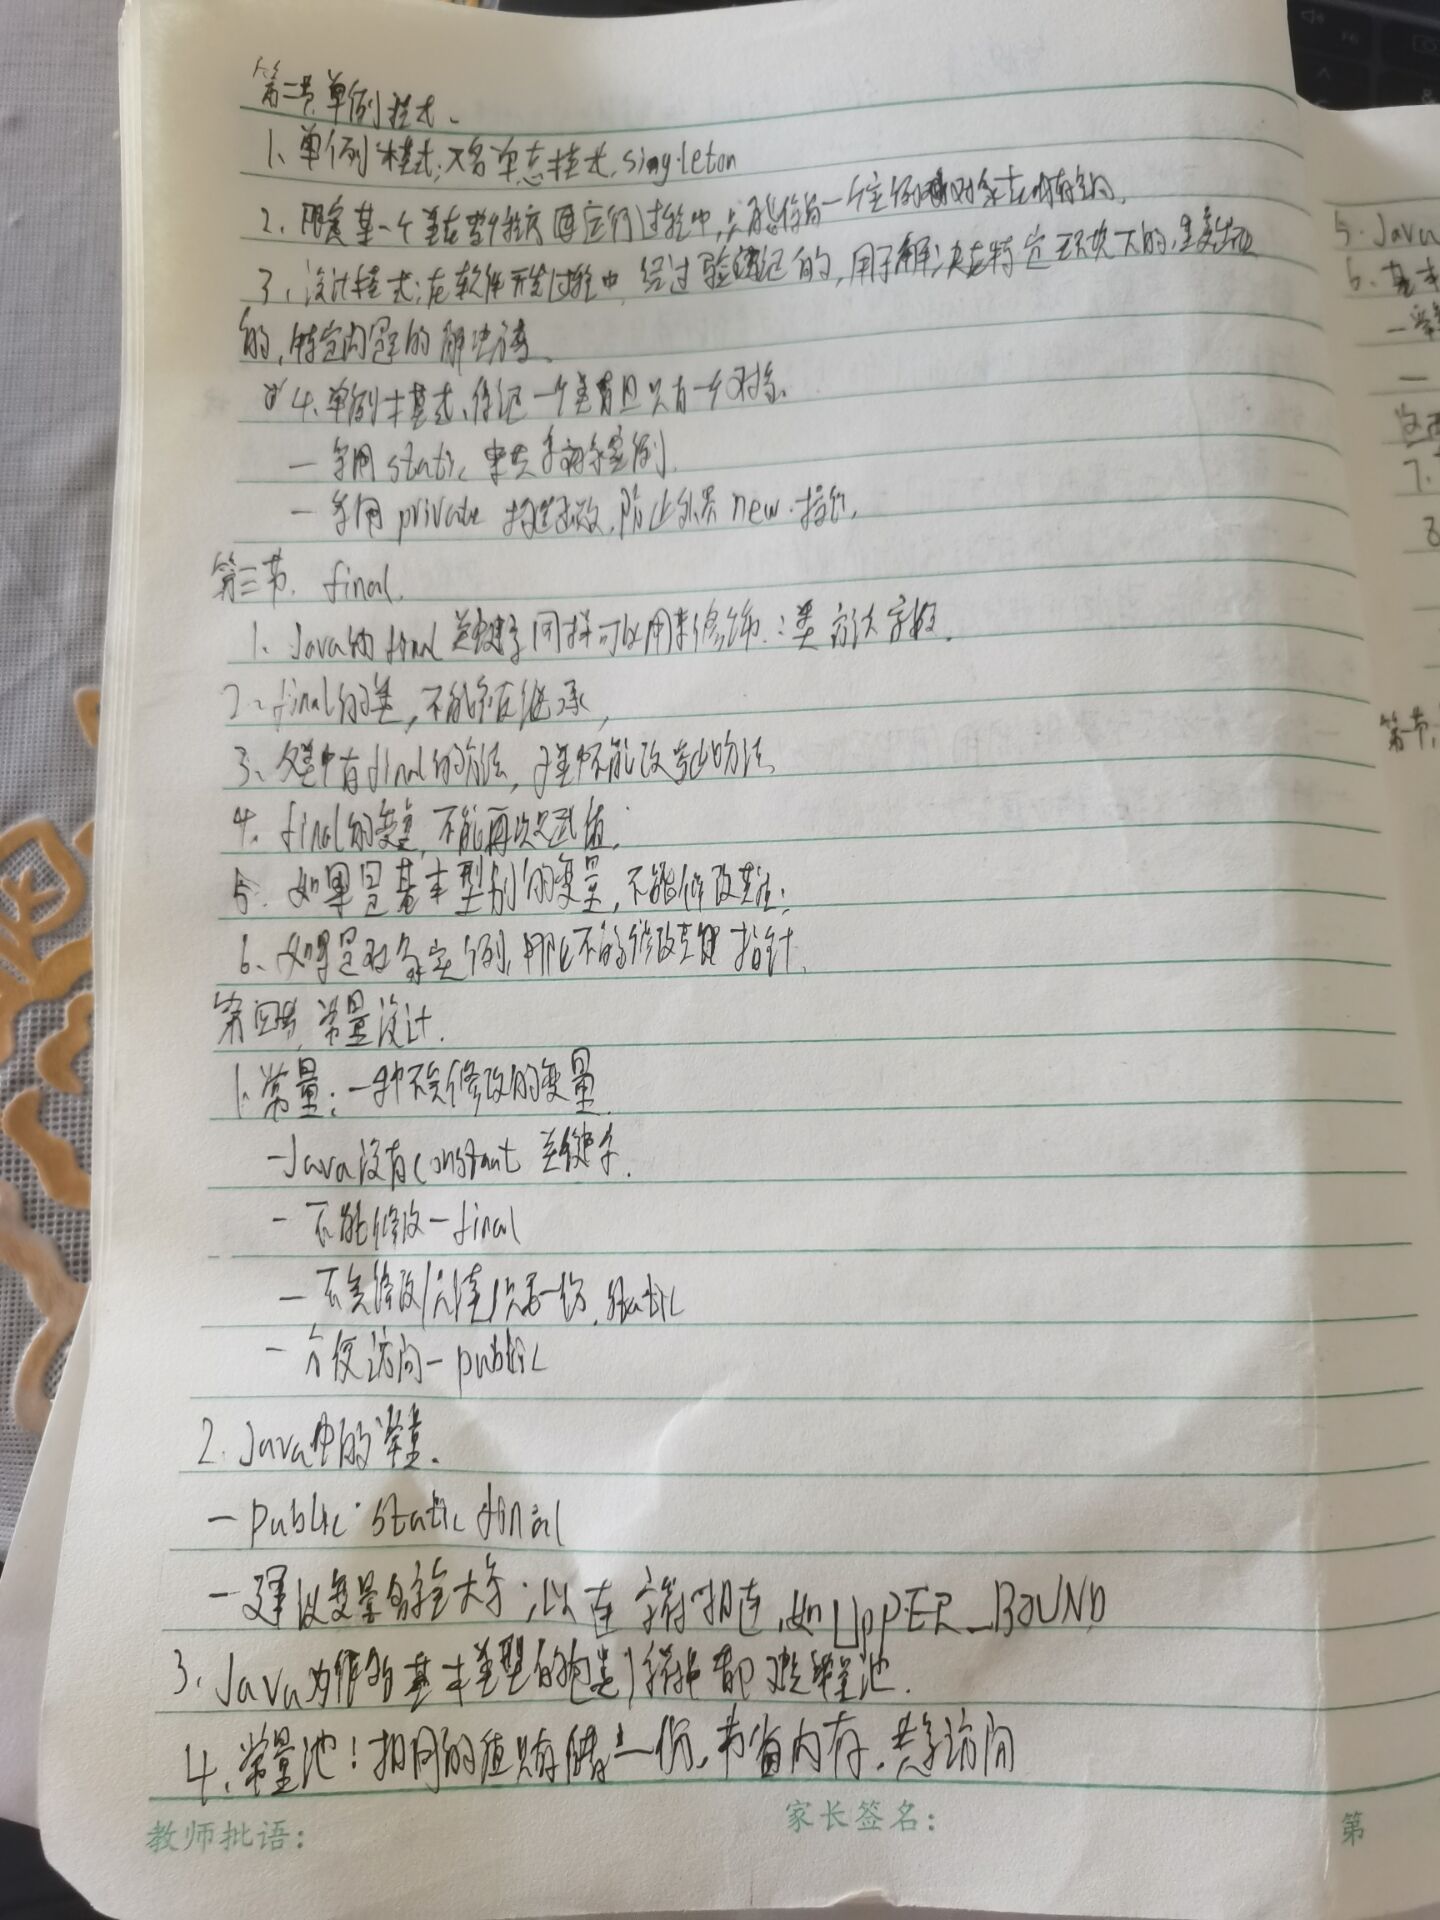 第二节 单例模式.
1、单例模式,又名单态模式,singleton
2、限定某一个类在整个程序运行过程中,只能保留一个实例对象在内存空间.
3、设计模式:在软件开发过程中,经过验证的,用于解决在特定环境下的,重复出现
的,特定问题的解决方案.
4、单例模式,保证一个类有且只有一个对象.
— 采用static 来共享实例.
— 采用private 构造函数,防止外界new 操作.
第三节. final.
1、Java的final 关键字同样可以用来修饰:类 方法 字段.
2、final的类,不能被继承,
3、父类中有final的方法,子类中不能改写此方法
4、final的变量,不能再次赋值.
5. 如果是基本型别的变量,不能修改其值;
6、如果是对象实例,那么不能修改其指针.
第四节,常量设计.
1.常量:一种不会修改的变量.
-Java没有constant 关键字.
- 不能修改-final
— 不会修改/只读/只要一份,static
- 方便访问-public
2. Java中的常量.
—public static final
—建议变量名字全大写;以连字符相连,如UPPER_BOUND
3、Java为 基本类型的包装 字符串都建 常量池.
4、常量池:相同的值只存储一份,节省内存,共享访问
教师批语:
家长签名:
第
5. Java
6、基本
一
7.
8
第一节,